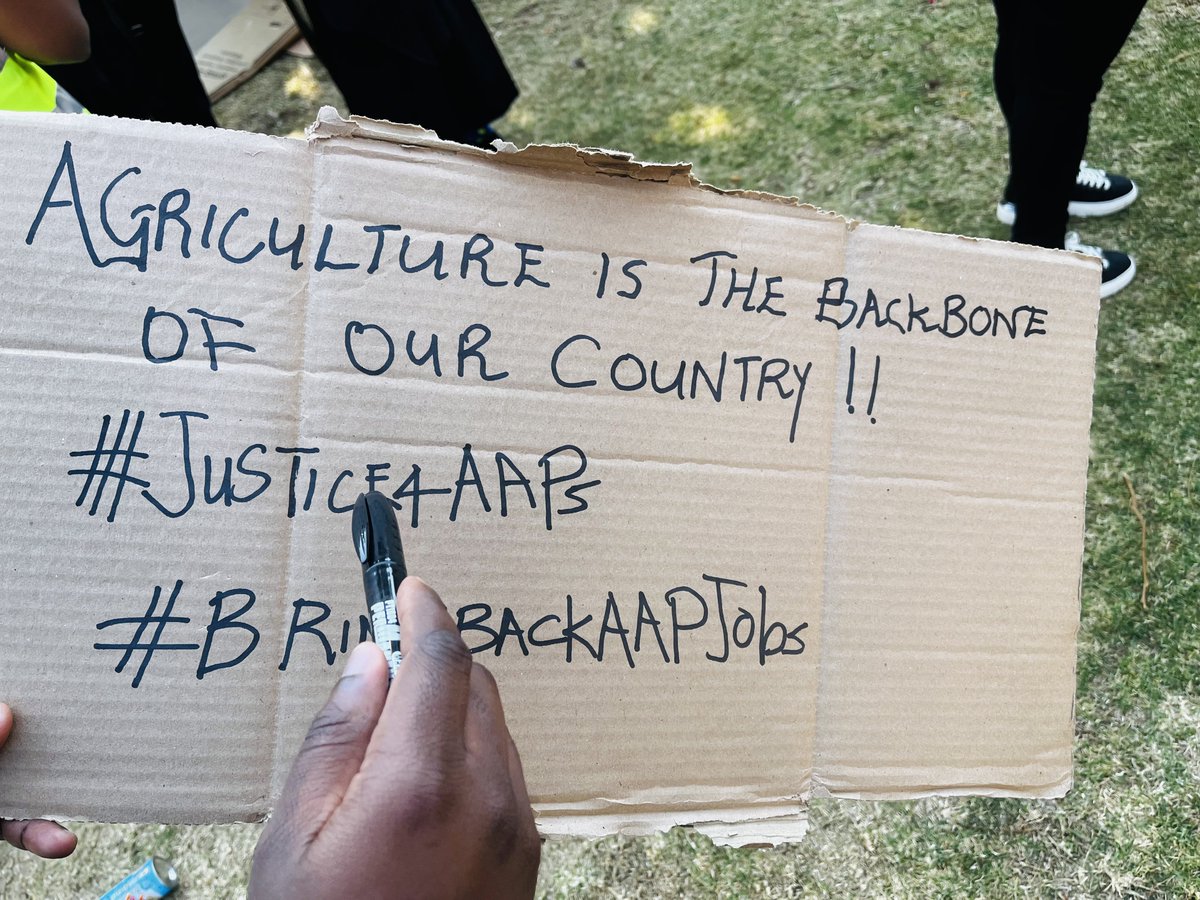 AGRICULTURE IS THE BACKBONE
OF OUR COUNTRY !!
#JUSTICE4AAPs
#BRINGBACKAAPJobs